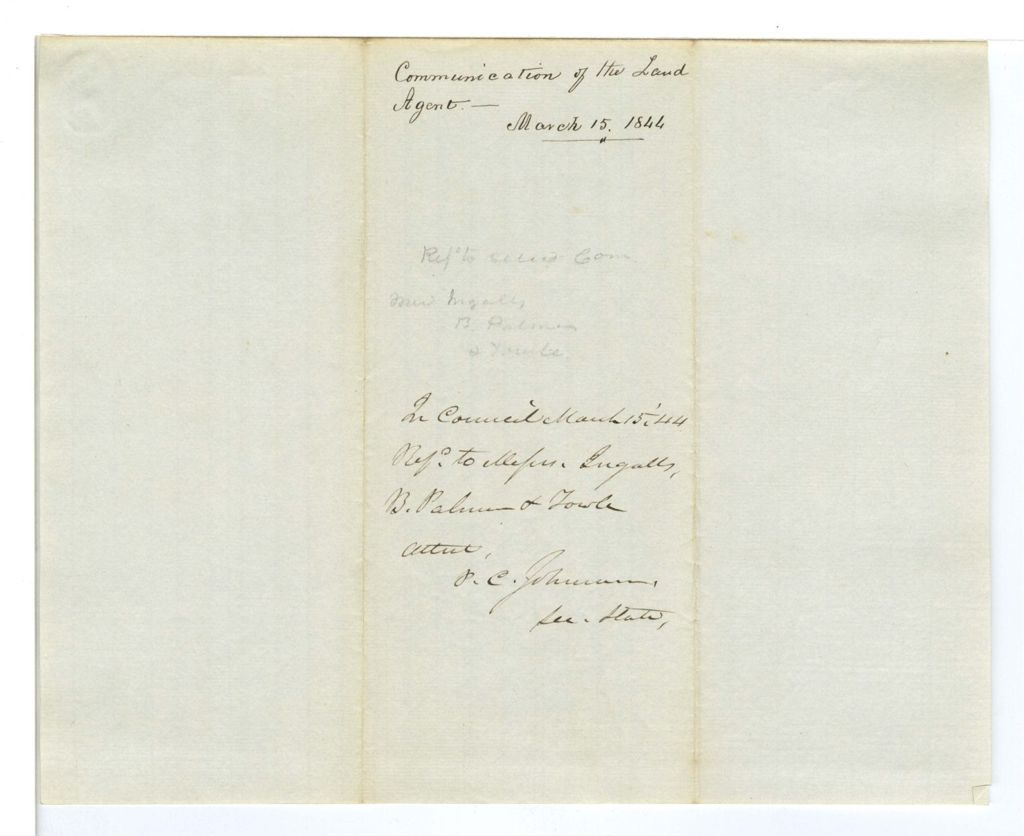 Communication of the Land
Agent. —
March 15. 1844
Refd to select Com.
Ingalls
B. Palmer
& Towle
In Council March 15, '44
Refd. to Messrs. Ingalls,
B. Palmer & Towle
attest,
P. C. Johnson,
Sec. State,